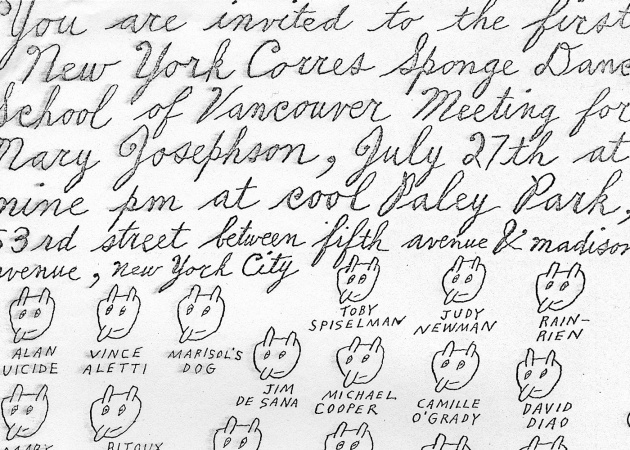 You are invited to the first
New York Corres Sponge Danc
School of Vancouver Meeting for
Mary Josephson, July 27th at
nine pm at cool Paley Park,
53rd street between fifth avenue & madison
avenue, new York City
TOBY
SPISELMAN
JUDY
NEWMAN
RAIN-
RIEN
ALAN
UICIDE
VINCE
ALETTI
MARISOL'S
DOG
JIM
DE SANA
MICHAEL
COOPER
CAMILLE
O'GRADY
DAVID
DIAO